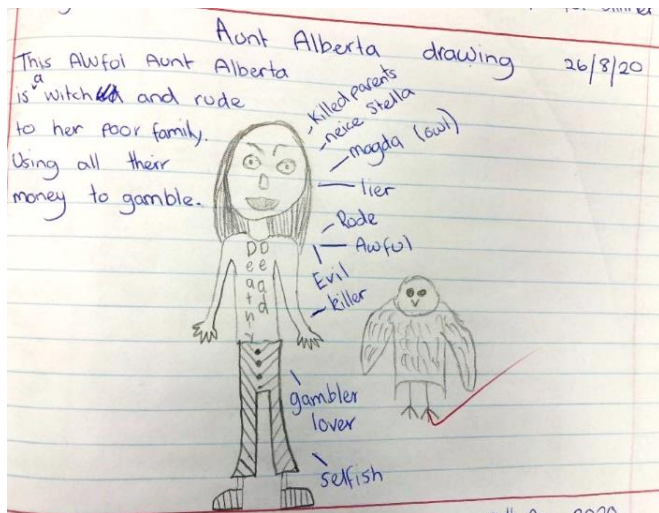 Aunt Alberta drawing 26/8/20
This Awfol Aunt Alberta
is a witch and rude
to her poor family.
Using all therr
money to gamble.
-Killed parents
-neice Stella
-magda (owl)
-lier
-Rude
-Awful
-Evil
-killer
-gambler
lover
-selfish
Deathy
Dead